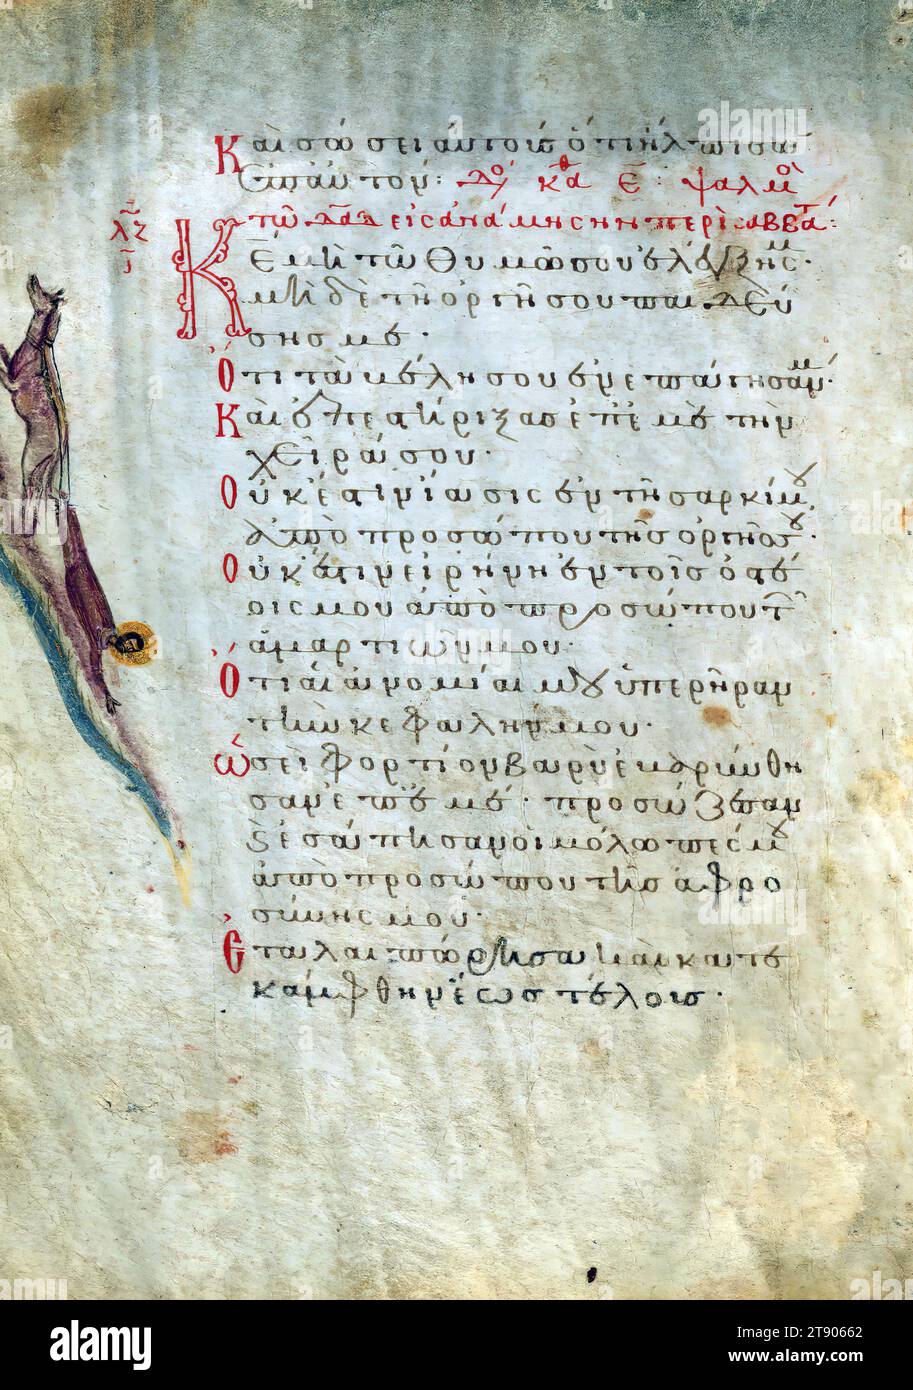 Καὶ σώσει αὐτοὺς ὅτι ἤλπισαν
ἐπ αὐτόν:
τῷ δᾱδ εἰς ἀνάμνησιν περὶ σαββάτ:
λζ
Κ̅Ε̅ μὴ τῷ θυμῷ σου ἐλέγξης μ·
μηδὲ τῇ ὀργῇ σου παιδεύ
σης με·
Ὅτι τὰ βέλη σου ἐνεπάγησάν μ·
Καὶ ἐπεστήριξας ἐπ ἐμὲ τὴν
χεῖρά σου·
Οὐκ ἔστιν ἴασις ἐν τῇ σαρκί μου
ἀπὸ προσώπου τῆς ὀργῆς σου·
Οὐκ ἔστιν εἰρήνη ἐν τοῖς ὀστέ
οις μου ἀπὸ προσώπου τῶν
ἁμαρτιῶν μου·
Ὅτι αἱ ἀνομίαι μου ὑπερῆραν
τὴν κεφαλήν μου·
ὡσεὶ φορτίον βαρὺ ἐβαρύνθη
σαν ἐπ ἐμέ· προσώζεσαν
καὶ ἐσάπησαν οἱ μώλωπές μου
ἀπὸ προσώπου τῆς ἀφρο
σύνης μου·
Ἐταλαιπώρησα καὶ κατε
κάμφθην ἕως τέλους·
alamy
Image ID: 2T90662
www.alamy.com